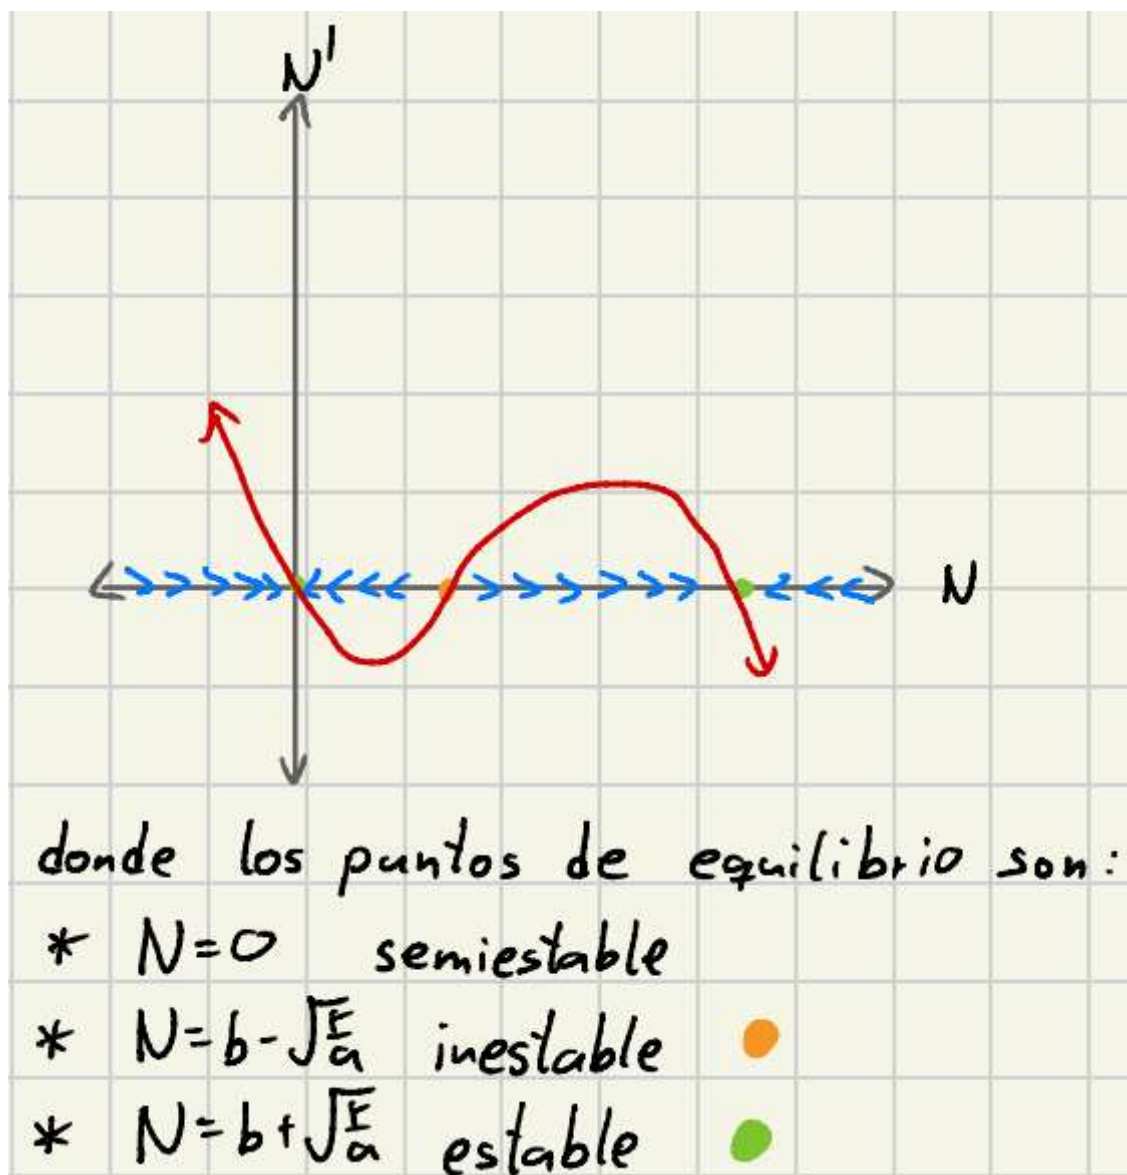 N'
N
donde los puntos de equilibrio son:
* N=0 semiestable
* N=b-√(r/a) inestable
* N=b+√(r/a) estable